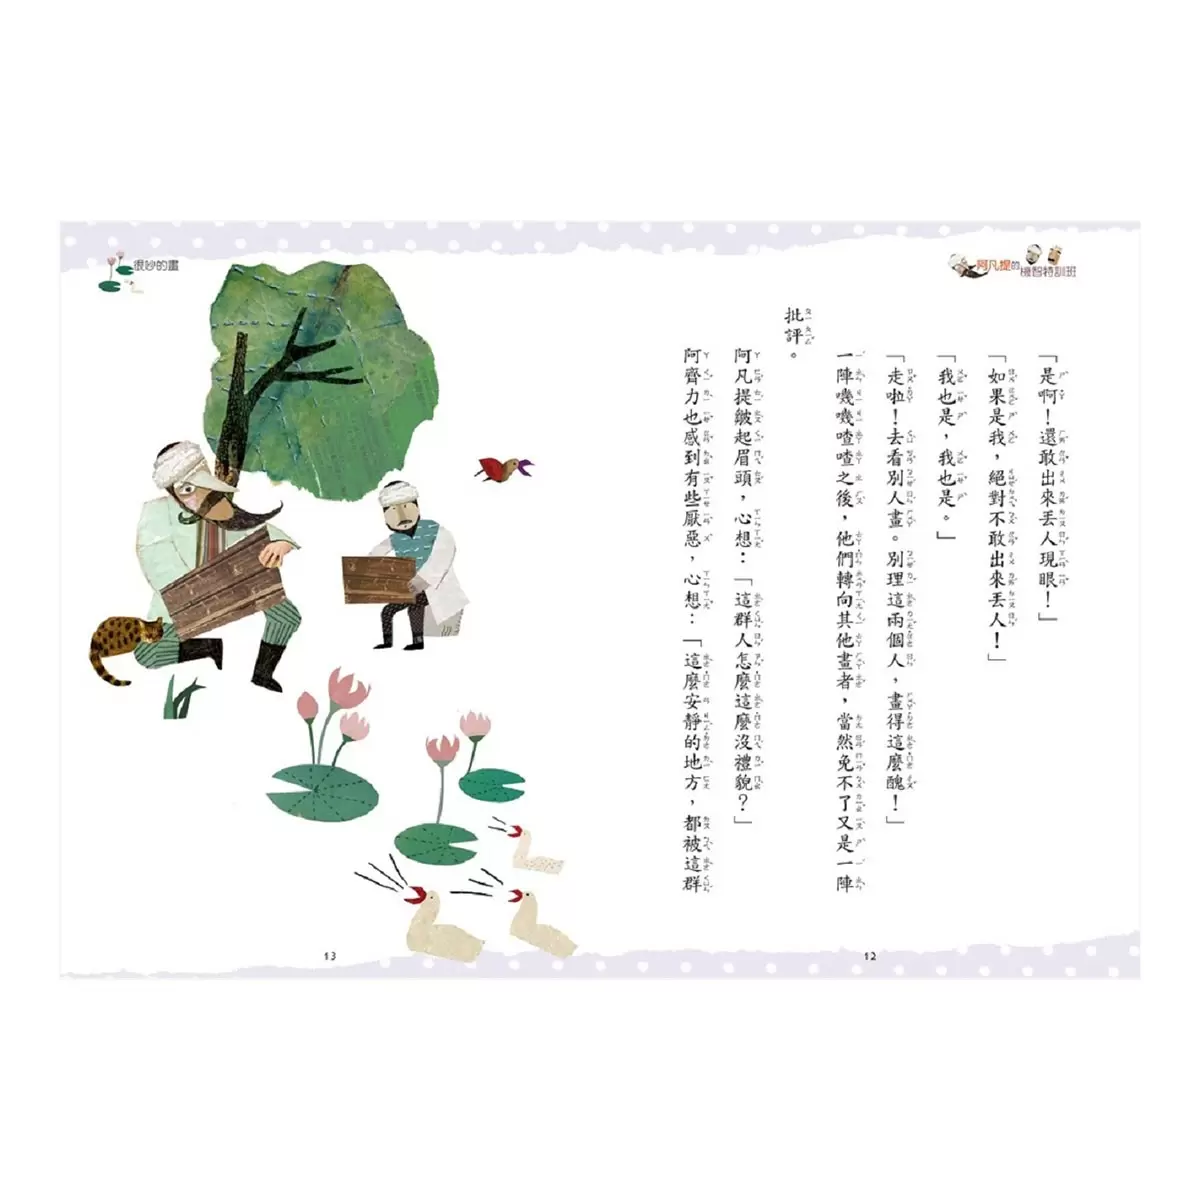 阿凡提的
機智特訓班
「是啊！還敢出來丟人現眼！」
「如果是我，絕對不敢出來丟人！」
「我也是，我也是。」
「走啦！去看別人畫。別理這兩個人，畫得這麼醜！」
一陣嘰嘰喳喳之後，他們轉向其他畫者，當然免不了又是一陣
批評。
阿凡提皺起眉頭，心想：「這群人怎麼這麼沒禮貌？」
阿齊力也感到有些厭惡，心想：「這麼安靜的地方，都被這群
12
很妙的畫
13